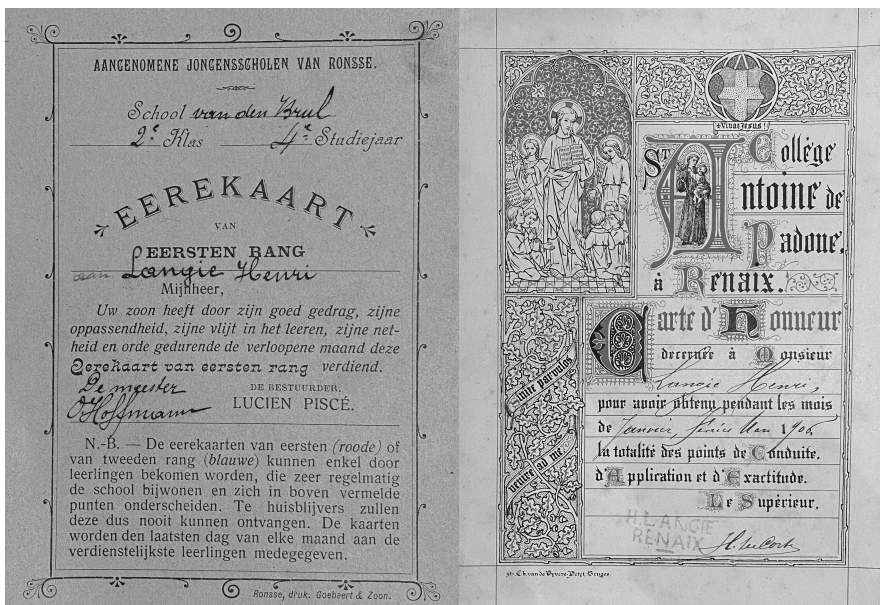 AANGENOMENE JONGENSSCHOLEN VAN RONSSE.
School van den Brul
2e Klas 4e Studiejaar
EEREKAART
VAN
EERSTEN RANG
aan Langie Henri
Mijnheer,
Uw zoon heeft door zijn goed gedrag, zijne
oppassendheid, zijne vlijt in het leeren, zijne net-
heid en orde gedurende de verloopene maand deze
Eerekaart van eersten rang verdiend.
De meester
DE BESTUURDER,
O Hoffmann
LUCIEN PISCÉ.
N.-B. — De eerekaarten van eersten (roode) of
van tweeden rang (blauwe) kunnen enkel door
leerlingen bekomen worden, die zeer regelmatig
de school bijwonen en zich in boven vermelde
punten onderscheiden. Te huisblijvers zullen
deze dus nooit kunnen ontvangen. De kaarten
worden den laatsten dag van elke maand aan de
verdienstelijkste leerlingen medegegeven.
Ronsse, druk. Goebeert & Zoon.
Vivat Jesus!
Collège
St Antoine de
Padoue.
à Renaix.
Carte d'Honneur
décernée à Monsieur
Langie Henri,
pour avoir obtenu pendant les mois
de Janvier, Février Mars 1906
la totalité des points de Conduite,
d'Application et d'Exactitude.
Le Supérieur,
Sinite parvulos
venire ad me.
H. LANGIE
RENAIX